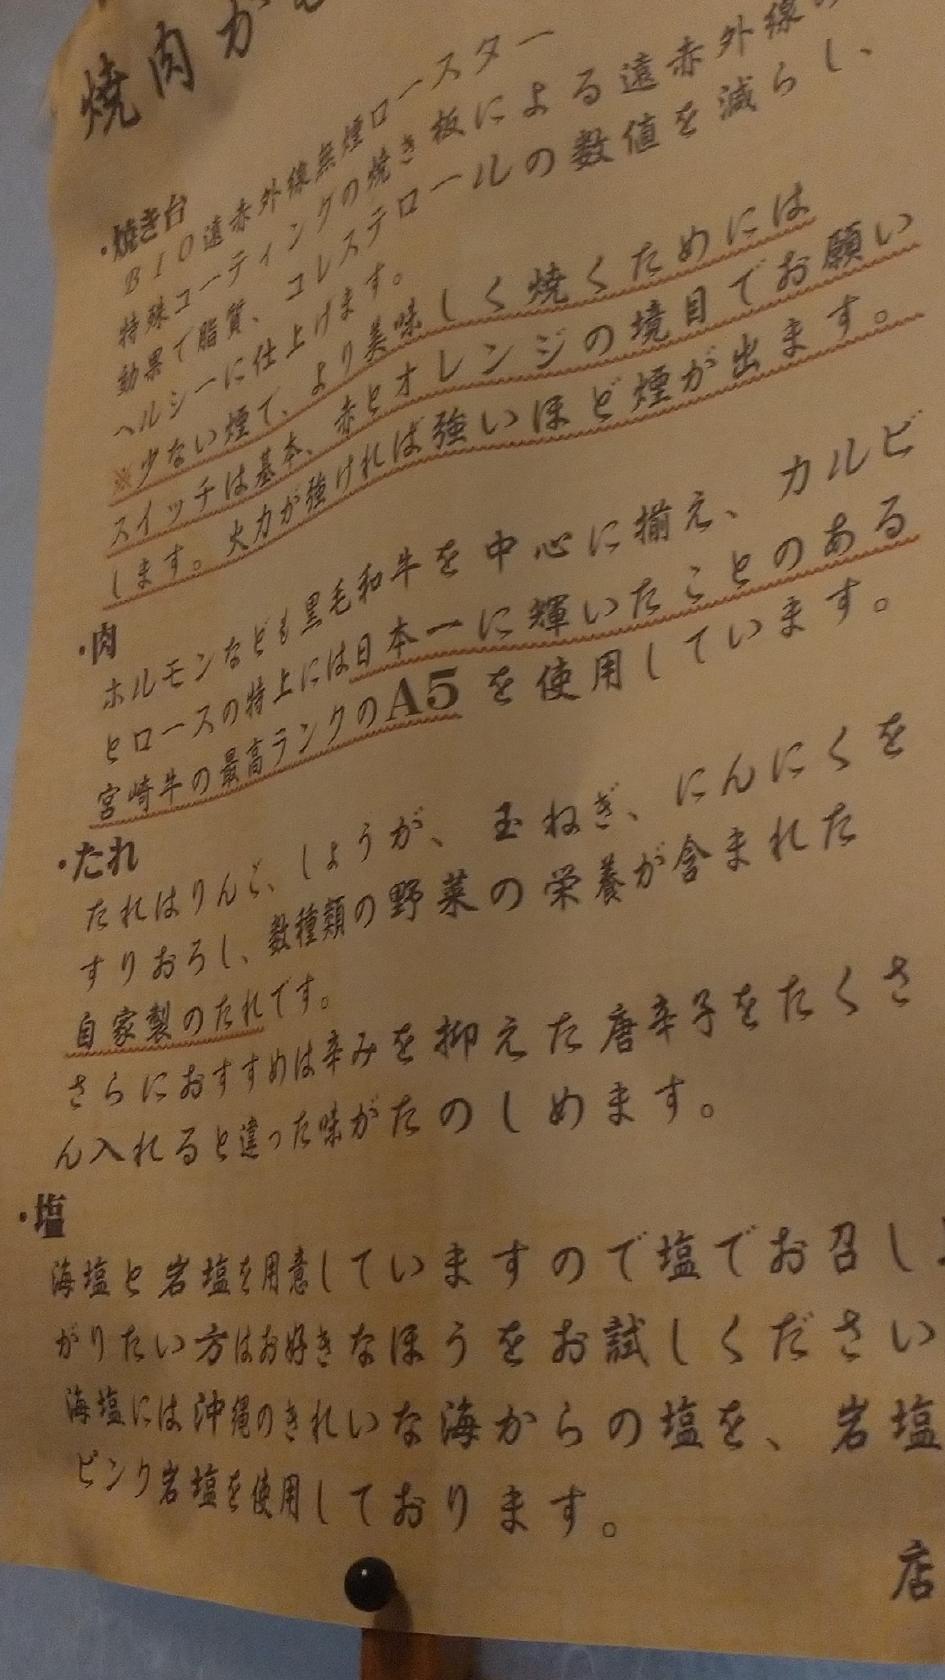 焼肉が
・焼き台
BIO遠赤外線無煙ロースター
特殊コーティングの焼き板による遠赤外線の
効果て脂質、コレステロールの数値を減らし、
ヘルシーに仕上げます。
※少ない煙て、より美味しく焼くためには
スイッチは基本、赤とオレンジの境目でお願い
します。火力が強ければ強いほど煙が出ます。
・肉
ホルモンなども黒毛和牛を中心に揃え、カルビ
とロースの特上には日本一に輝いたことのある
宮崎牛の最高ランクのA5を使用しています。
・たれ
たれはりんご、しょうが、玉ねぎ、にんにくを
すりおろし、数種類の野菜の栄養が含まれた
自家製のたれです。
さらにおすすめは辛みを抑えた唐辛子をたくさ
ん入れると違った味がたのしめます。
・塩
海塩と岩塩を用意していますので塩でお召し
がりたい方はお好きなほうをお試しください
海塩には沖縄のきれいな海からの塩を、岩塩
ピンク岩塩を使用しております。
店